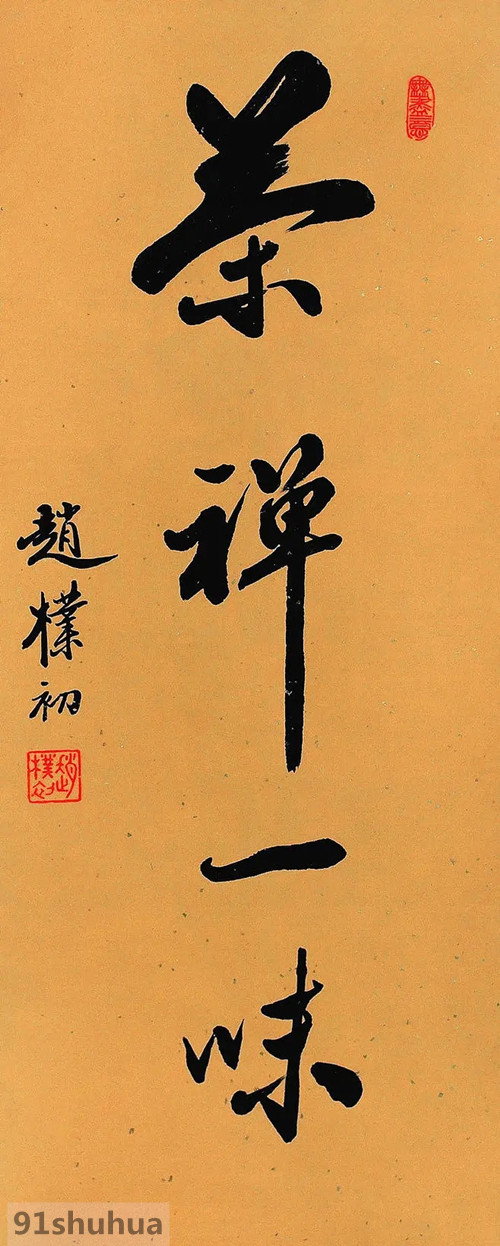 茶禅一味
趙樸初
無盡意
趙樸初
91shuhua